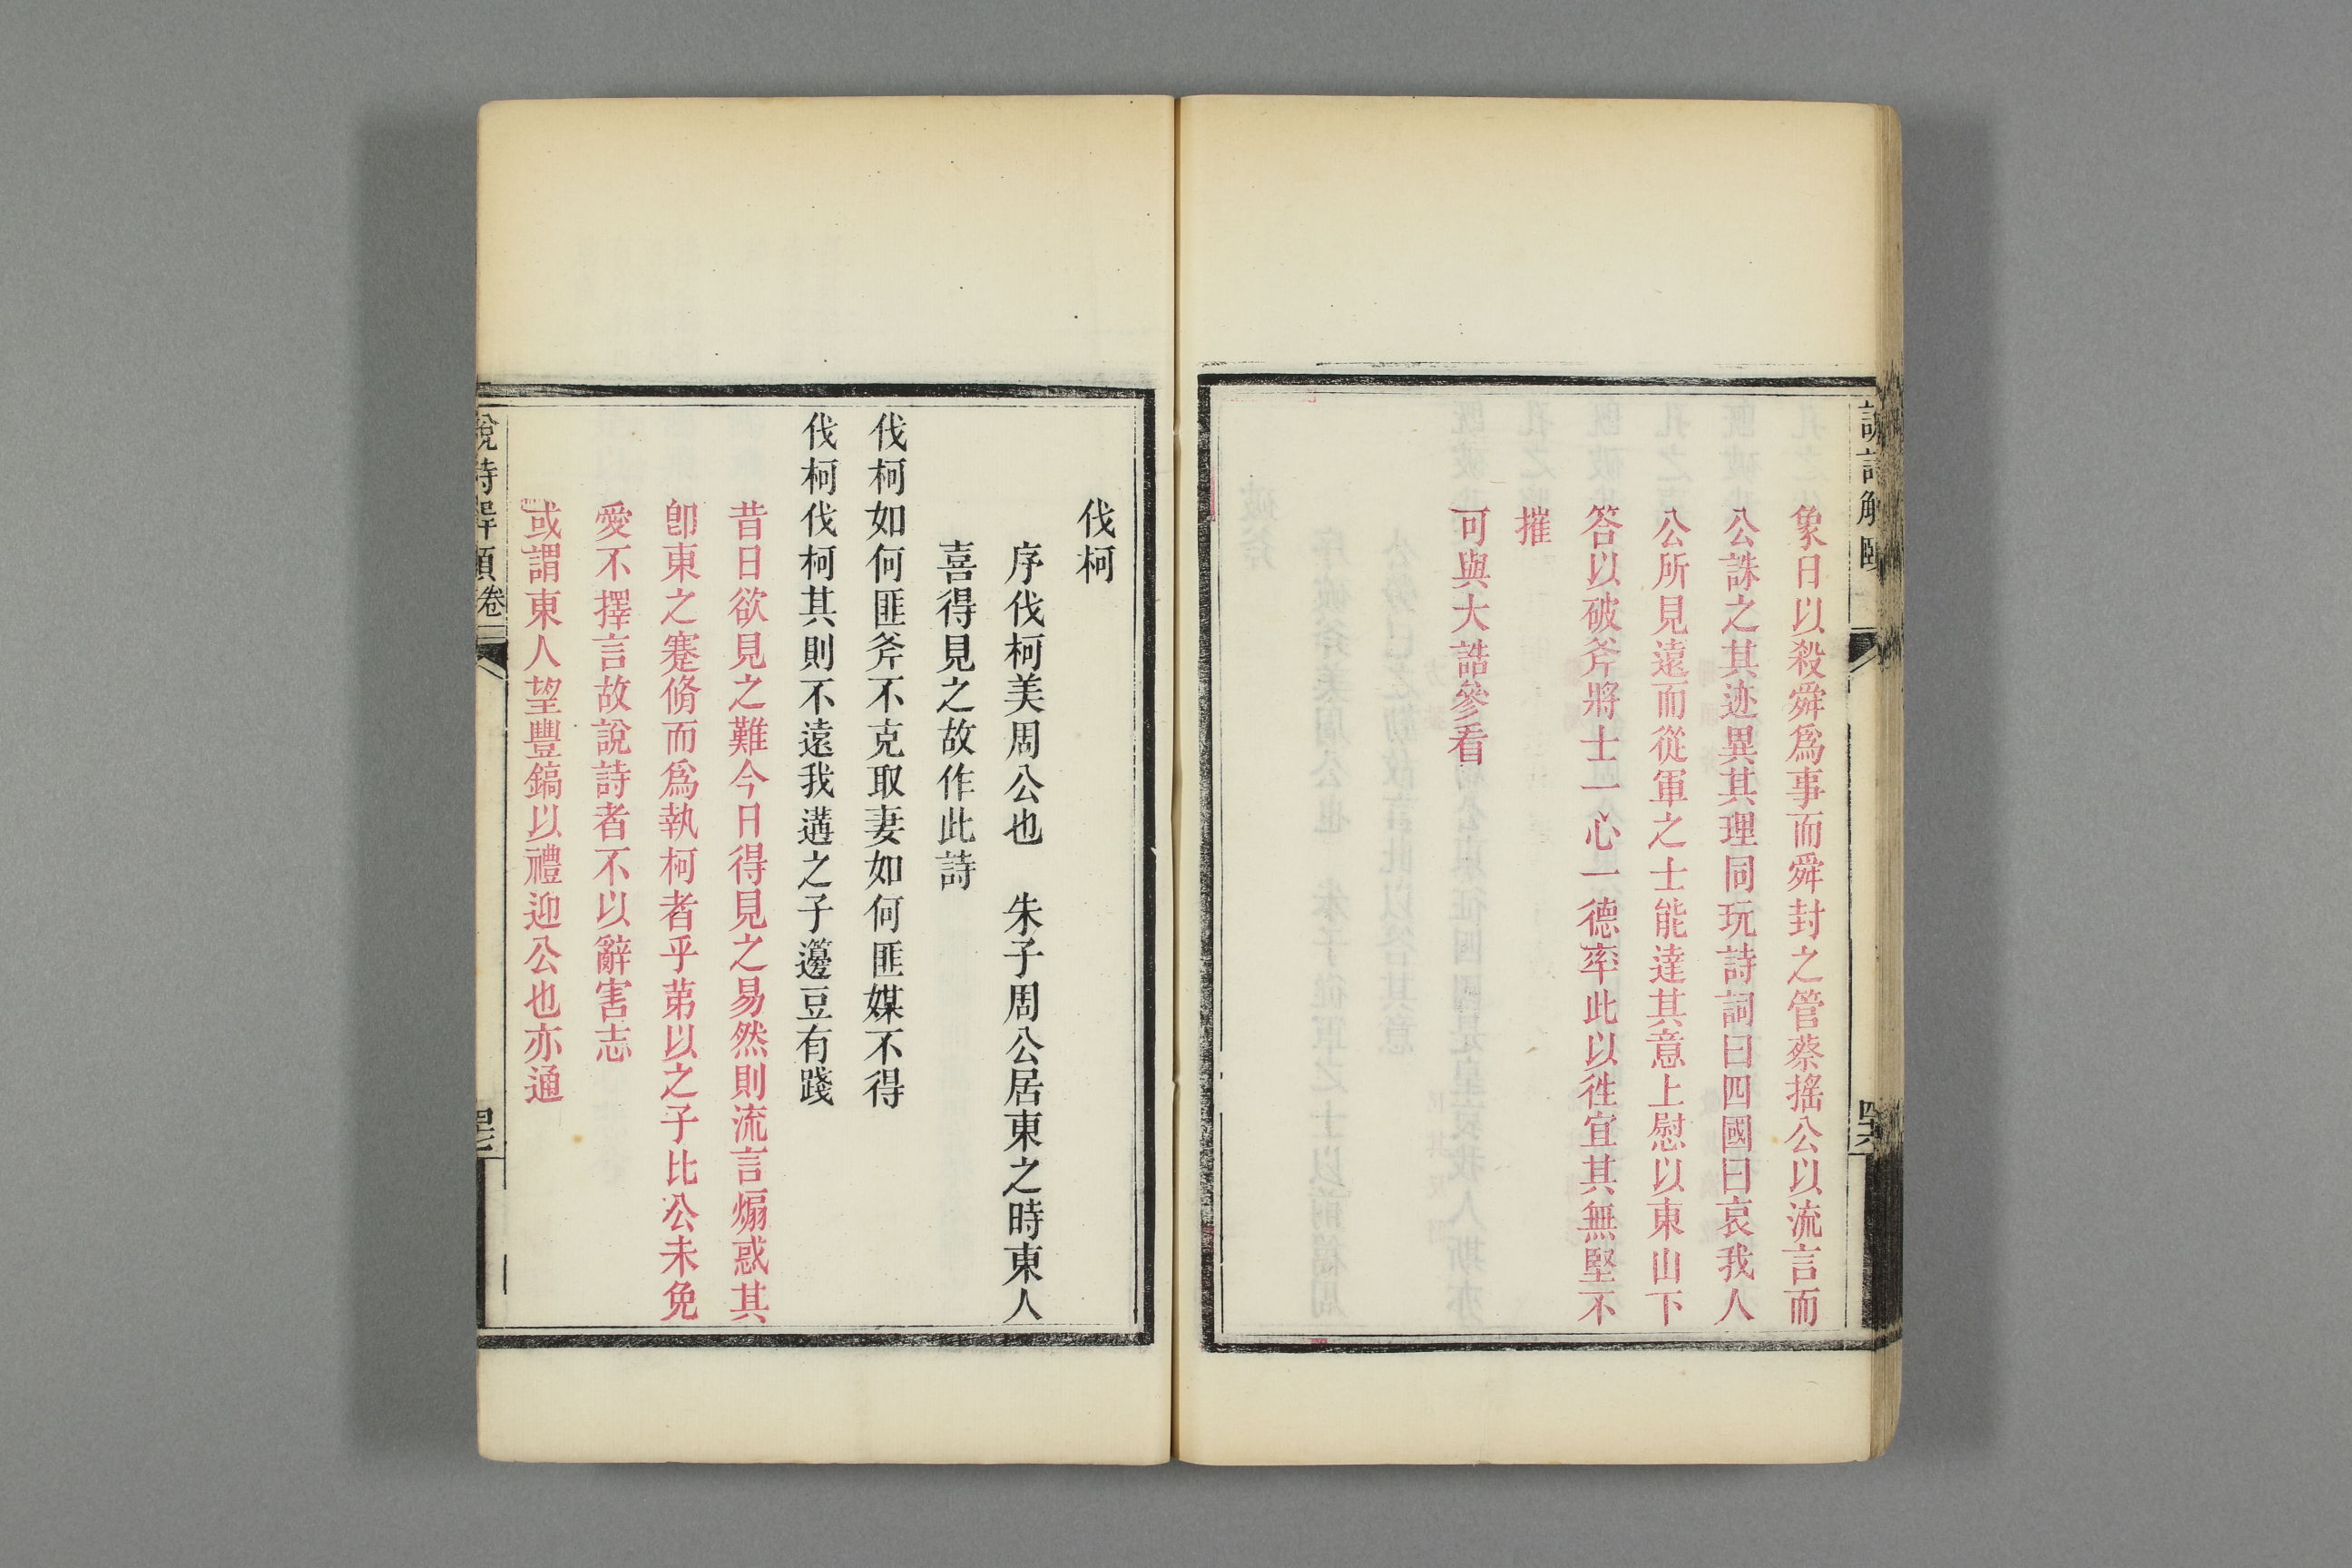 象日以殺舜爲事而舜封之管蔡搖公以流言而
公誅之其迹異其理同玩詩詞曰四國曰哀我人
公所見遠而從軍之士能達其意上慰以東山下
答以破斧將士一心一德率此以徃宜其無堅不
摧
可與大誥參看
伐柯
序伐柯美周公也　朱子周公居東之時東人
喜得見之故作此詩
伐柯如何匪斧不克取妻如何匪媒不得
伐柯伐柯其則不遠我遘之子籩豆有踐
昔日欲見之難今日得見之易然則流言煽惑其
卽東之蹇脩而爲執柯者乎苐以之子比公未免
愛不擇言故說詩者不以辭害志
或謂東人望豐鎬以禮迎公也亦通
說詩解頤卷